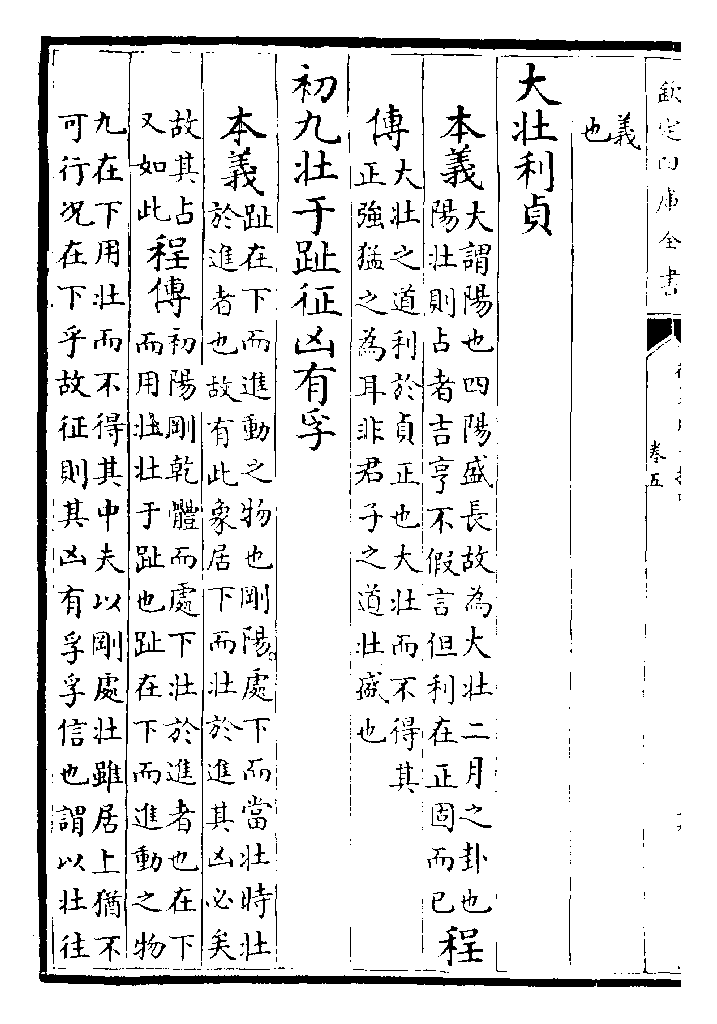 欽定四庫全書
卷五
義
也
大壯利貞
本義
大謂陽也四陽盛長故為大壯二月之卦也
陽壯則占者吉亨不假言但利在正固而已
程
傳
大壯之道利於貞正也大壯而不得其
正強猛之為耳非君子之道壯盛也
初九壯于趾征凶有孚
本義
趾在下而進動之物也剛陽處下而當壯時壯
於進者也故有此象居下而壯於進其凶必矣
故其占
又如此
程傳
初陽剛乾體而處下壯於進者也在下
而用壯壯于趾也趾在下而進動之物
九在下用壯而不得其中夫以剛處壯雖居上猶不
可行况在下乎故征則其凶有孚孚信也謂以壯往